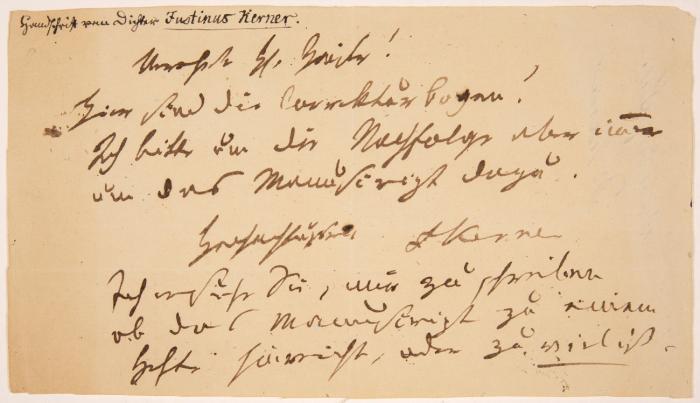 Handschrift von Dichter Justinus Kerner.
Verehrt H.
Hier sind die Correkturbogen!
Ich bitte um die Nachfolge aber
um das Manuscript dazu.
Kerner
Ich ersuche Sie, mir zu schreiben
ob das Manuscript zu einem
Hefte hinreicht, oder zu viel ist.